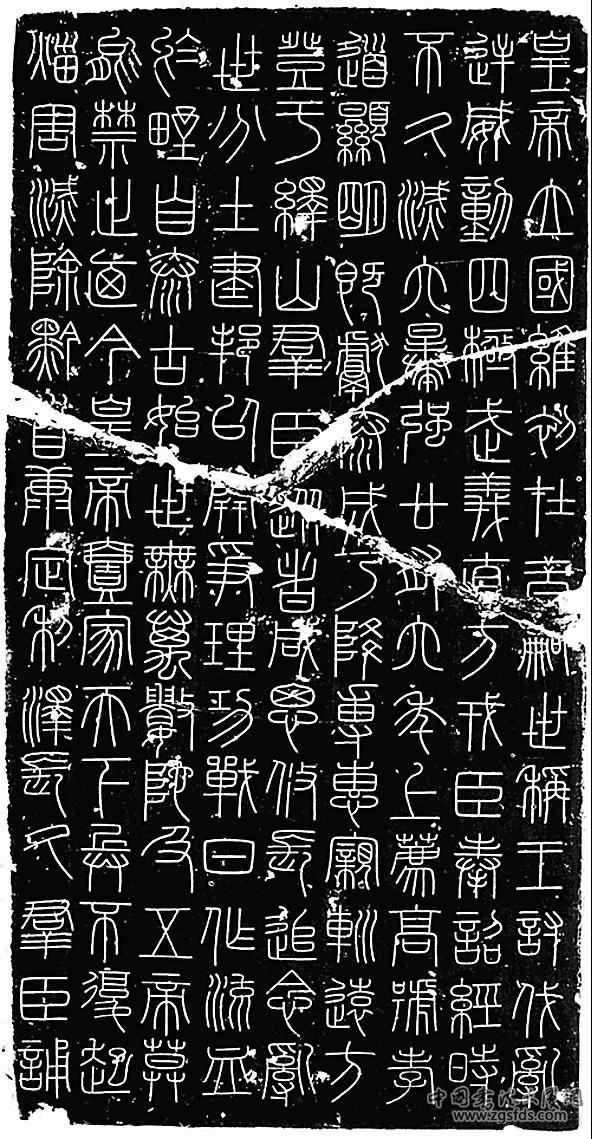 皇帝立國維初在昔嗣世稱王討伐亂
逆威動四極武義直方戎臣奉詔經時
不久滅六暴強廿有六年上薦高號孝
道顯明既獻泰成乃降專惠寴巡遠方
登于繹山羣臣從者咸思攸長追念亂
世分土建邦以開爭理功戰日作流血
於野自泰古始世無萬數陀及五帝莫
能禁止廼今皇帝壹家天下兵不復起
災害滅除黔首康定利澤長久羣臣誦
www.zgsfds.com